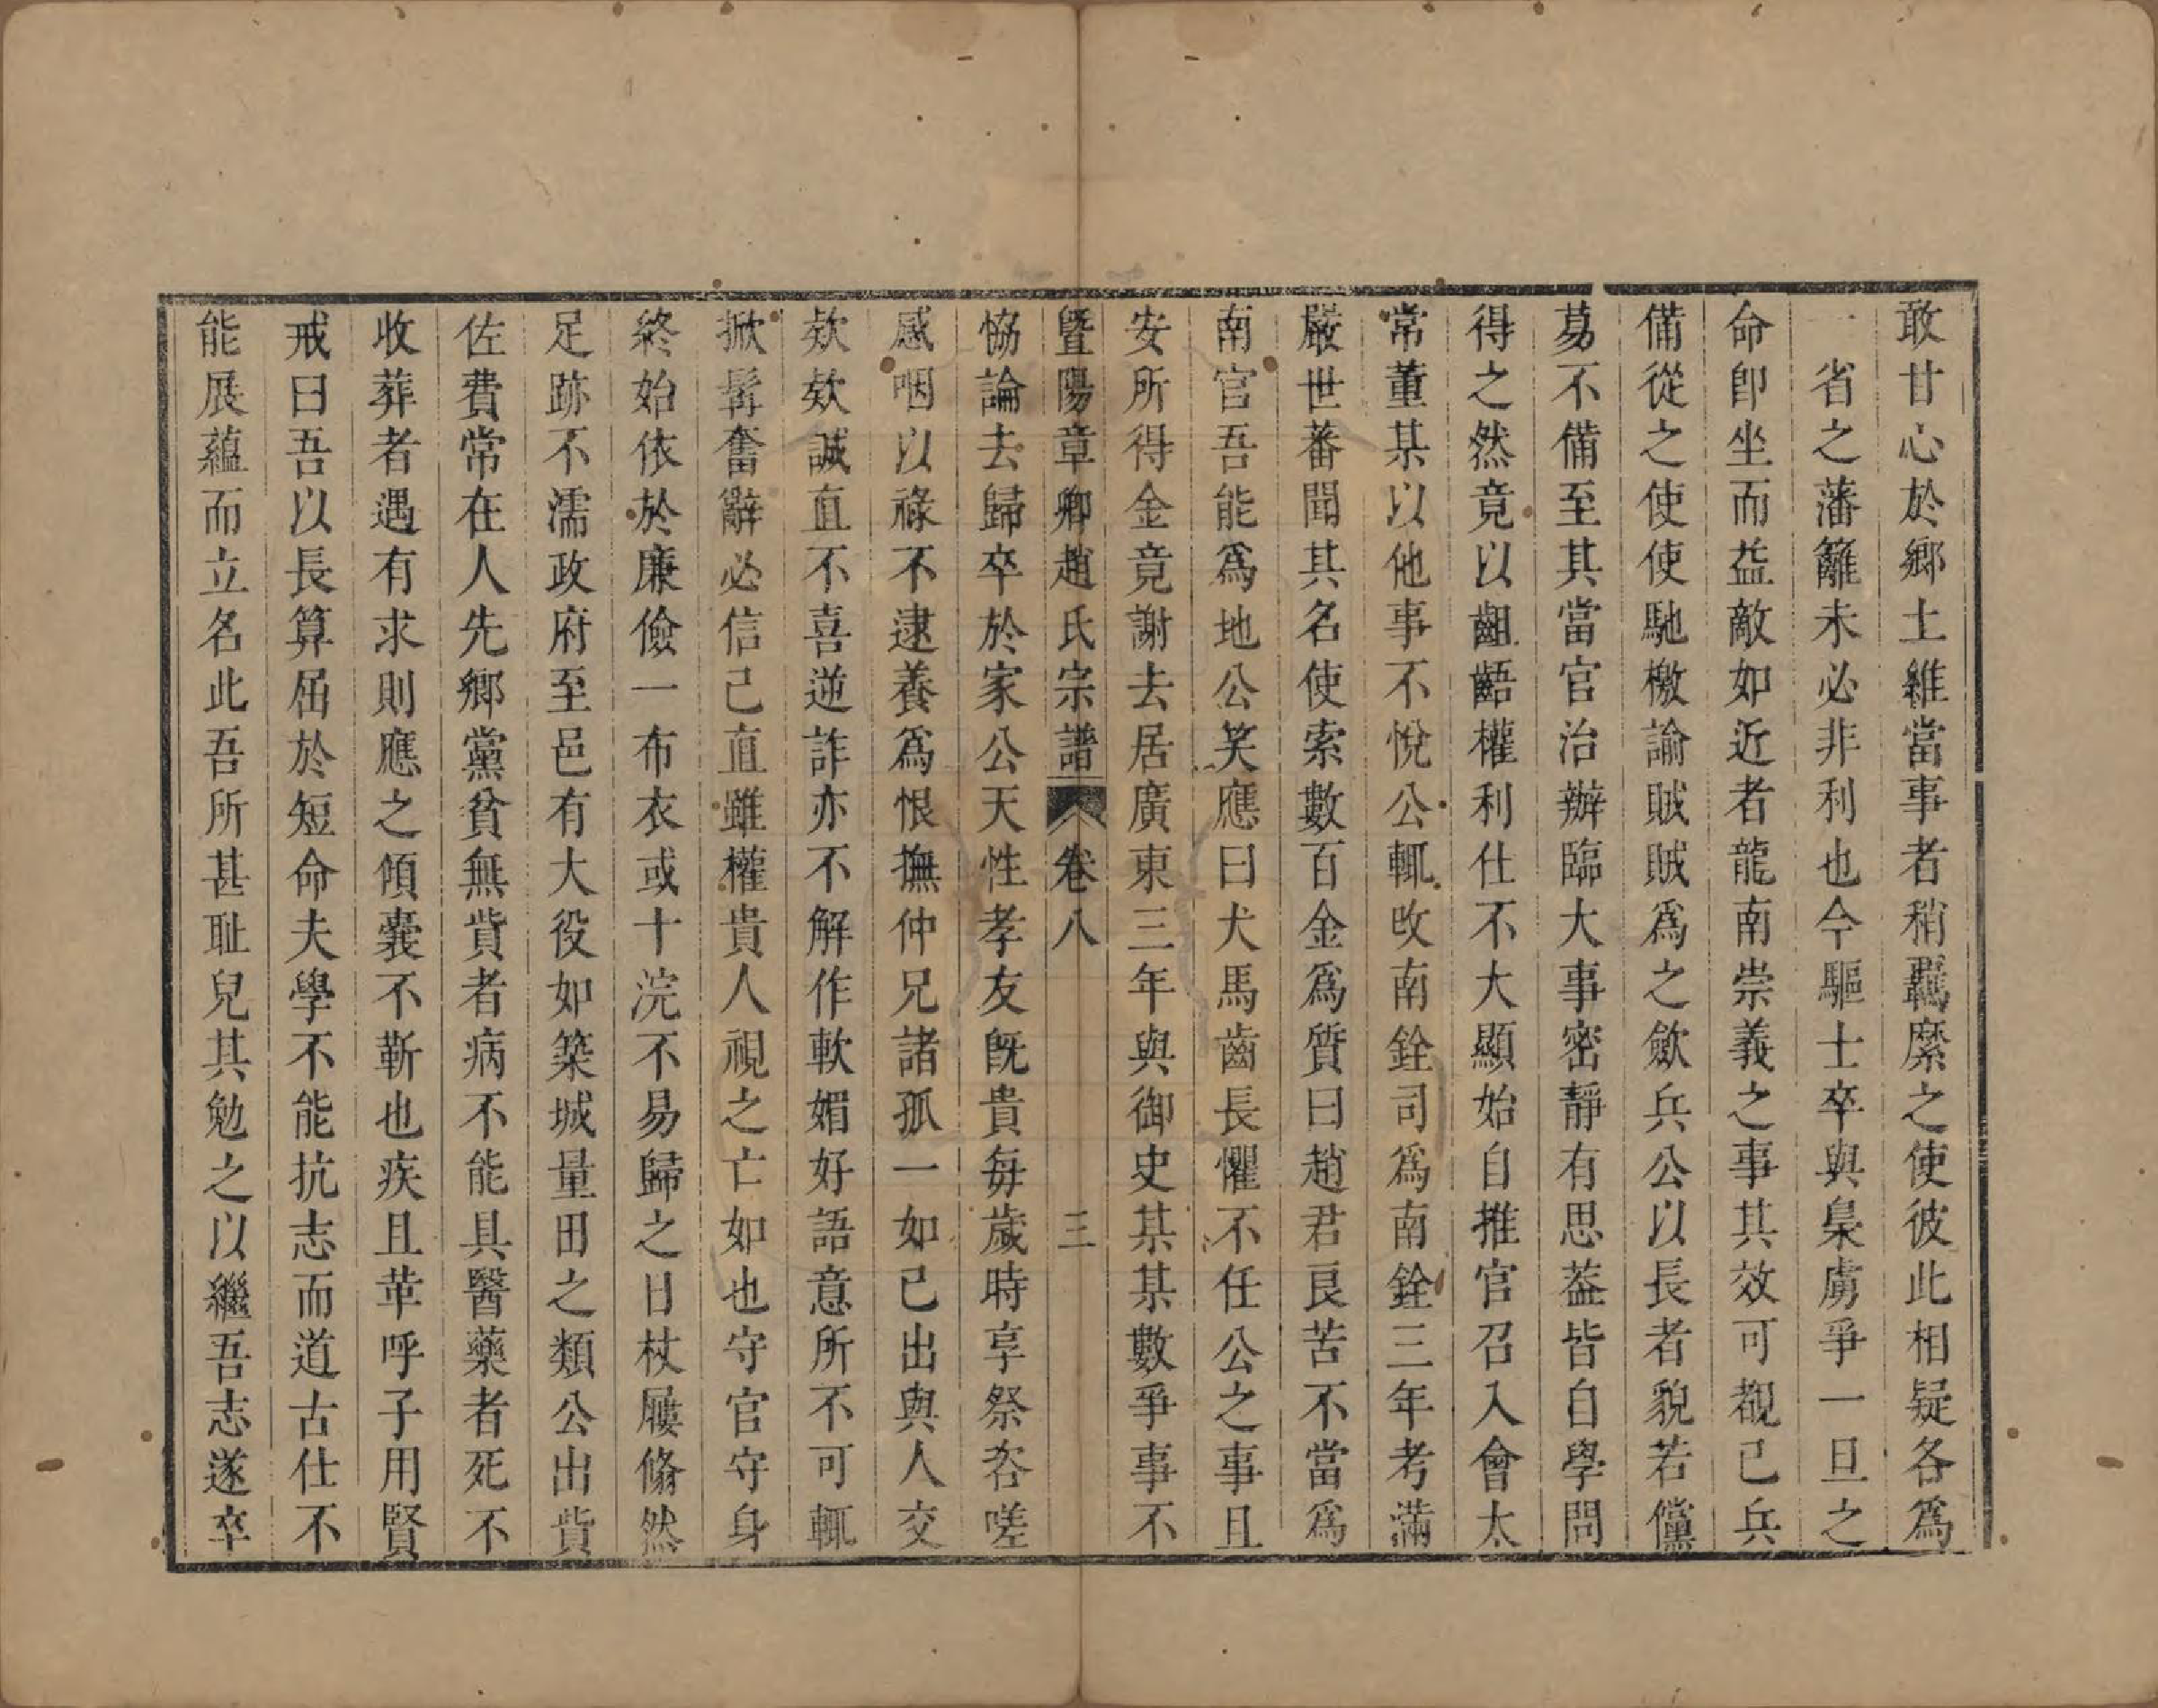 敢甘心於鄉土維當事者稍羈縻之使彼此相疑各爲
一省之藩籬未必非利也今驅士卒與梟虜爭一旦之
命卽坐而益敵如近者龍南崇義之事其效可覩已兵
備從之使使馳檄諭賊賊爲之歛兵公以長者貌若儻
蒭不備至其當官治辦臨大事密靜有思葢皆自學問
得之然竟以齟齬權利仕不大顯始自推官召入會太
常董某以他事不悅公輒改南銓司爲南銓三年考滿
嚴世蕃聞其名使索數百金爲質曰趙君良苦不當爲
南官吾能爲地公笑應曰犬馬齒長懼不任公之事且
安所得金竟謝去居廣東三年與御史某某數爭事不
暨陽章卿趙氏宗譜 卷八 三
恊論去歸卒於家公天性孝友旣貴每歲時享祭咨嗟
感咽以祿不逮養爲恨撫仲兄諸孤一如已出與人交
欵欵誠直不喜逆詐亦不解作軟媚好語意所不可輒
掀髯奮辭必信己直雖權貴人視之亡如也守官守身
終始依於廉儉一布衣或十浣不易歸之日杖屨翛然
足跡不濡政府至邑有大役如築城量田之類公出貲
佐費常在人先鄉黨貧無貲者病不能具醫藥者死不
收葬者遇有求則應之傾囊不靳也疾且革呼子用賢
戒曰吾以長算屈於短命夫學不能抗志而道古仕不
能展蘊而立名此吾所甚耻兒其勉之以繼吾志遂卒